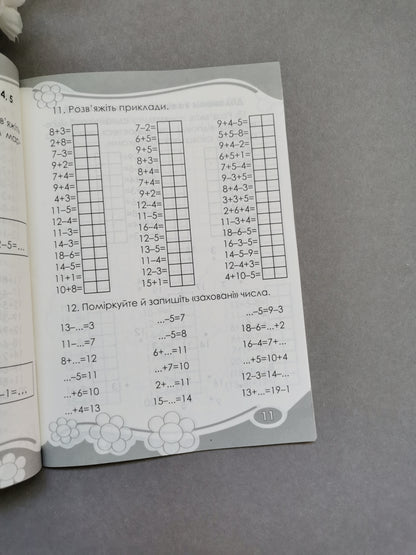 4, 5
11. Розв'яжіть приклади.
8+3=
2+8=
7–3=
9+2=
7+4=
9+4=
4+3=
11–5=
12–4=
11–3=
14–3=
18–6=
14–5=
11+1=
10+8=
7–2=
6+5=
9+5=
8+4=
7+4=
9+2=
12–4=
11–5=
16–4=
12–5=
13–5=
11–4=
12–3=
15+1=
9+4–5=
5+5–8=
9–4–2=
6+5+1=
7+5–4=
9–5+3=
8+4–3=
3+3+5=
2+6+4=
11–3+4=
18–6–5=
16–3–3=
14–5–9=
12–4+3=
4+10–5=
12. Поміркуйте й запишіть «заховані» числа.
13–...=3
11–...=7
8+...=12
...–5=11
...+6=10
...+4=13
...–5=7
...–5=8
6+...=11
...+7=10
2+...=11
15–...=14
...–5=9–3
18–6=...+2
16–4=7+...
...+5=10+4
12–3=14–...
13+...=19–1
2–5=...
–1=...
11